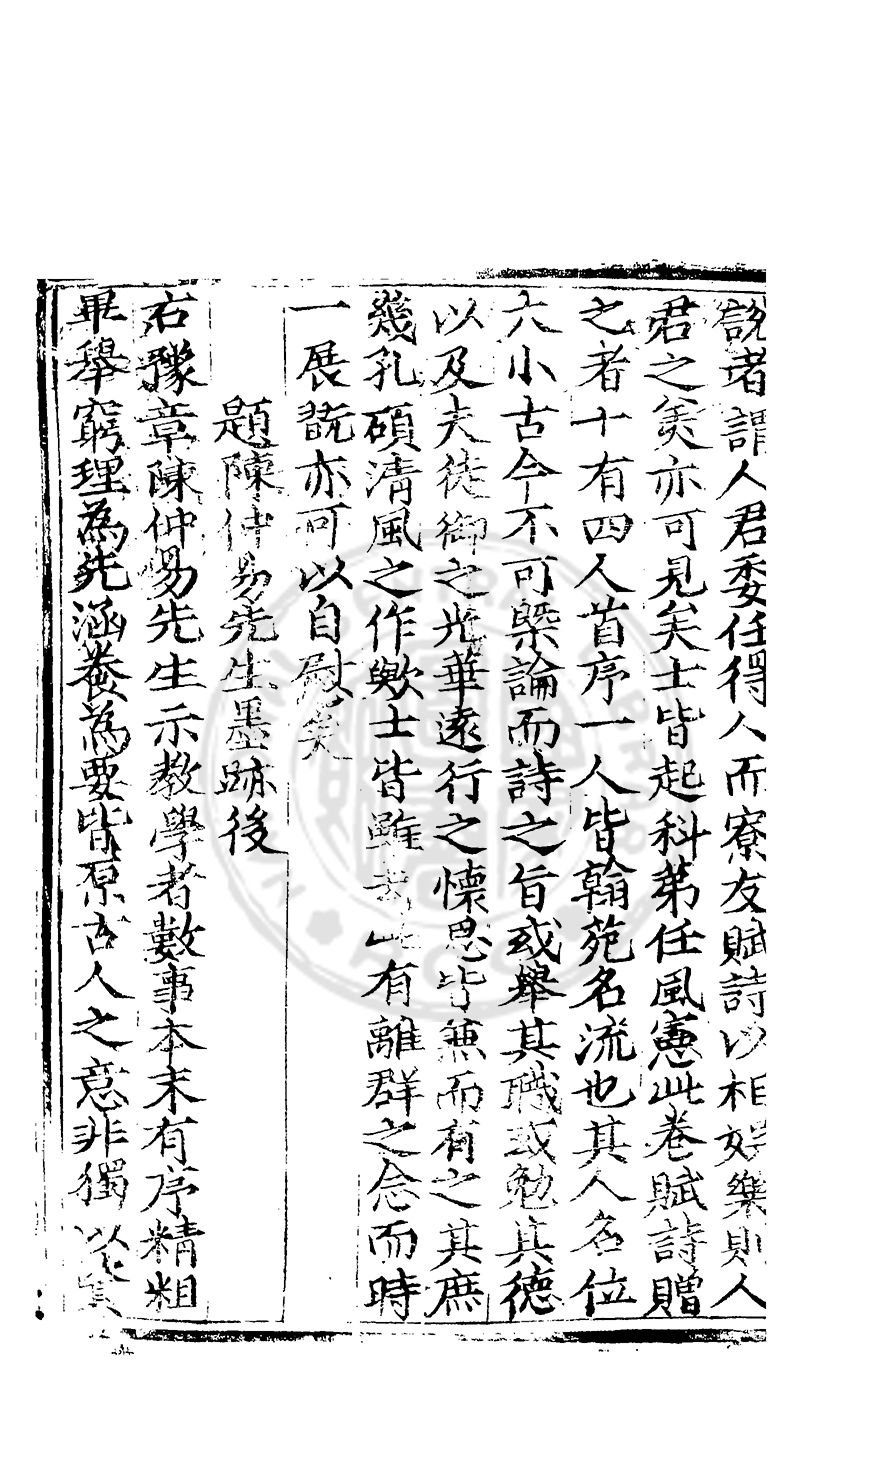 說者謂人君委任得人而寮友賦詩以相娛樂則人
君之美亦可見矣士皆起科第任風憲此卷賦詩贈
之者十有四人首序一人皆翰苑名流也其人名位
大小古今不可槩論而詩之旨或舉其職或勉其德
以及夫徒御之光華遠行之懷思皆兼而有之其庶
幾孔碩清風之作歟士皆雖去此有離群之念而時
一展翫亦可以自慰矣
題陳仲易先生墨跡後
右豫章陳仲易先生示教學者數事本末有序精粗
畢舉窮理為先涵養為要皆原古人之意非獨以